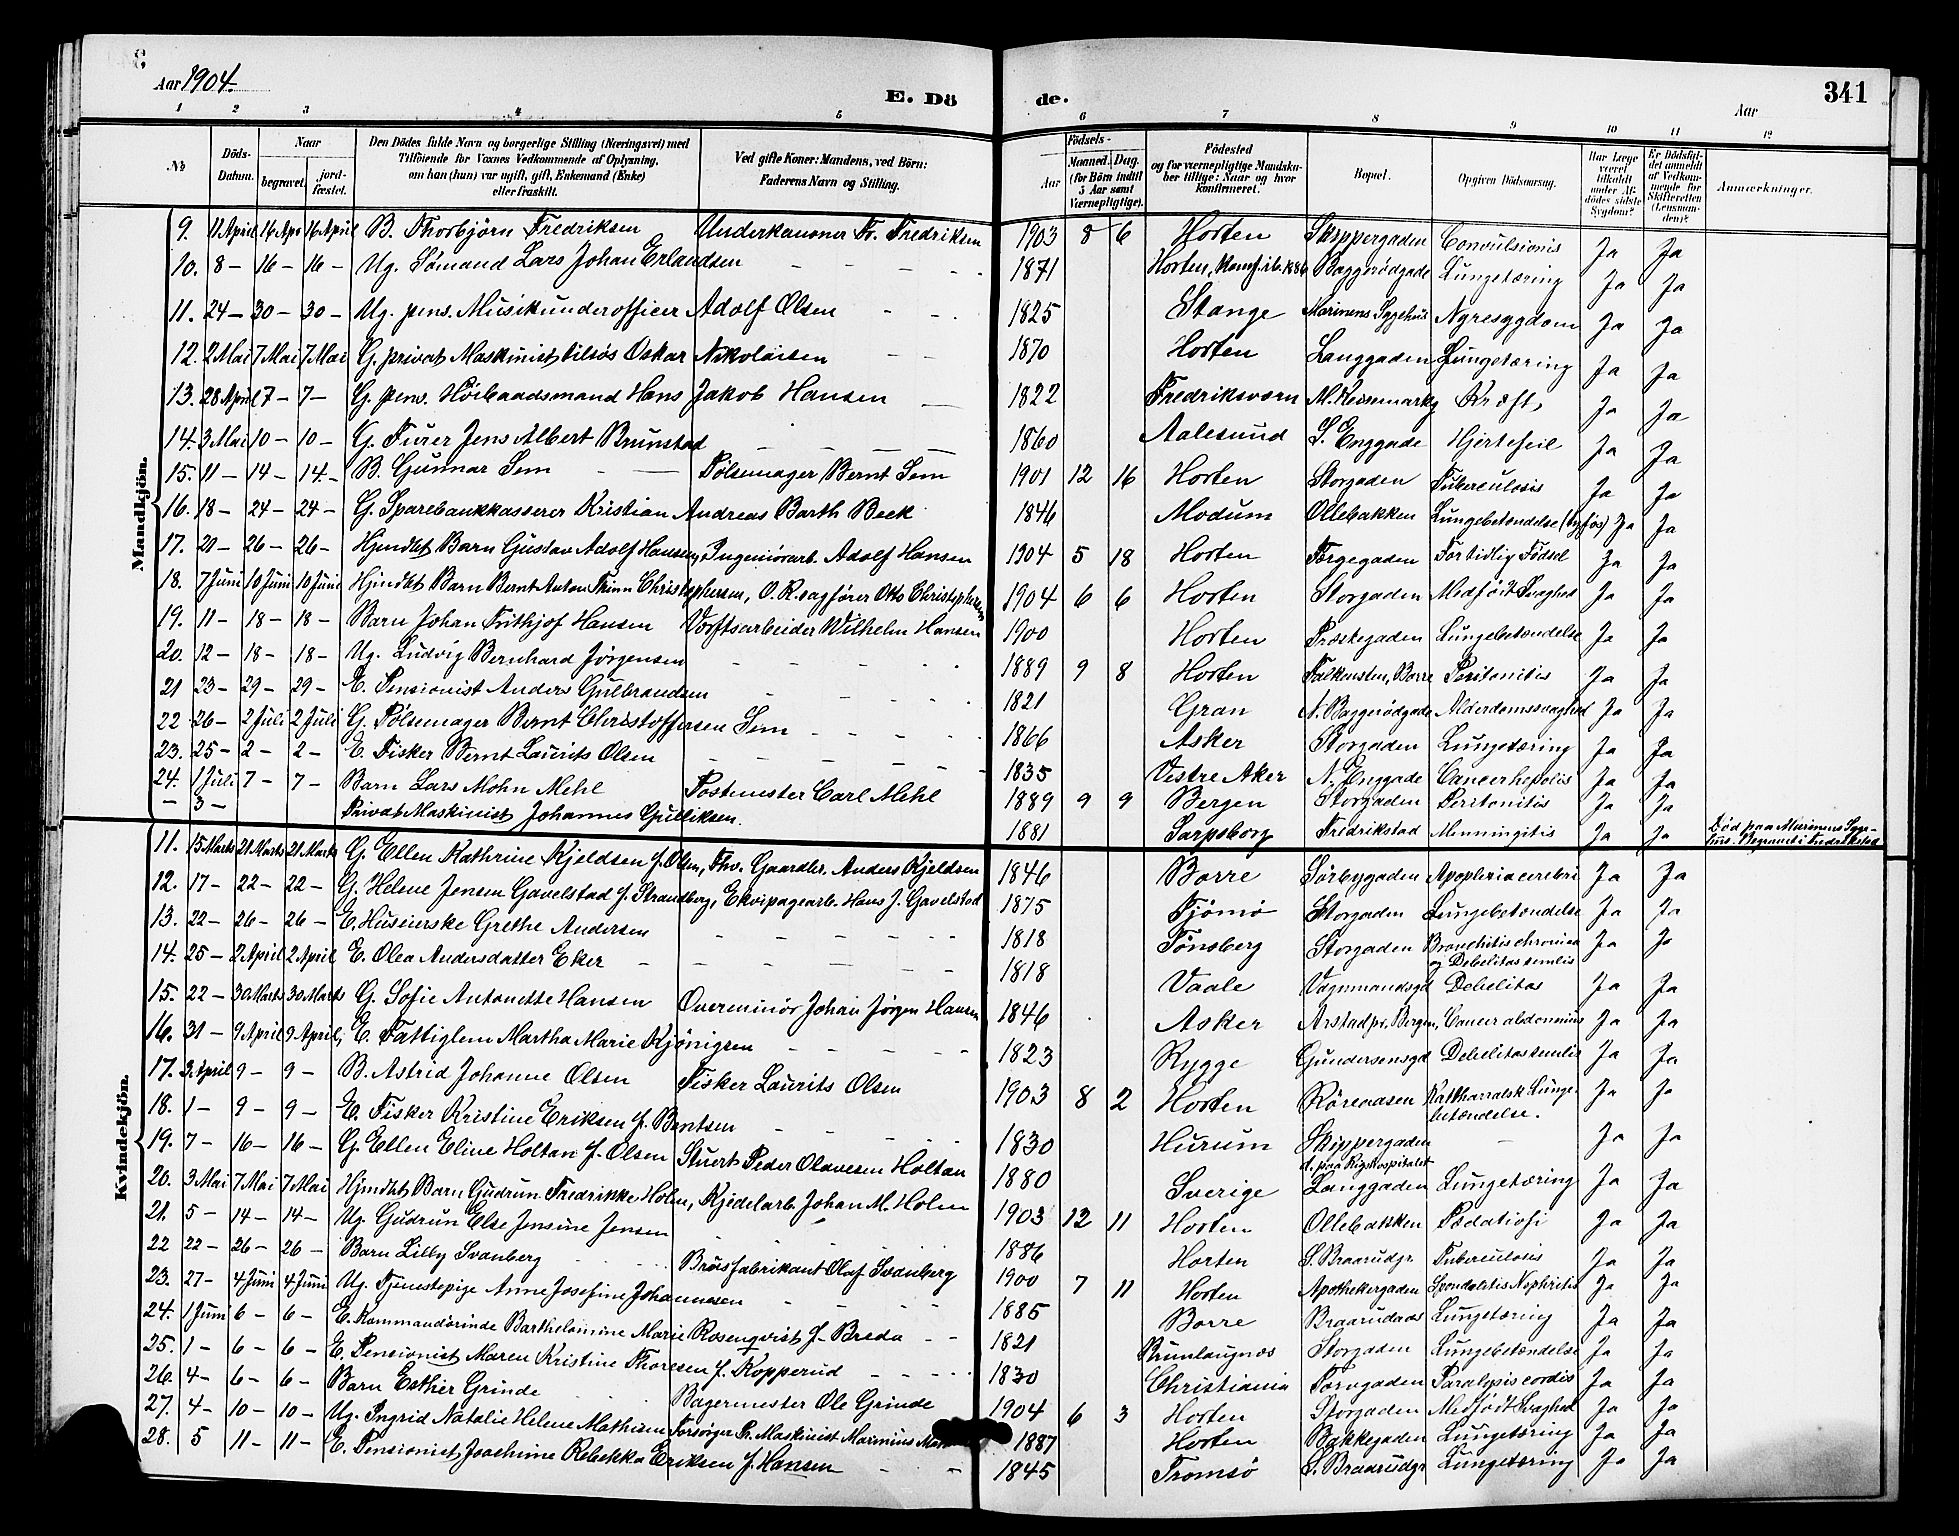 Aar 1904.
E. Dö
de.
Aar
341
1 2 3 4 5 6 7 8 9 10 11 12
№
Döds-Datum.
Naar
begravet.
jord-fæstet.
Den Dödes fulde Navn og borgerlige Stilling (Næringsvei) med Tilföiende for Voxnes Vedkommende af Oplysning, om han (hun) var ugift, gift, Enkemand (Enke) eller fraskilt.
Ved gifte Koner: Mandens, ved Börn: Faderens Navn og Stilling.
Födsels-
Aar
Maaned. Dag.
(for Börn indtil 5 Aar samt Værnepligtige).
Födested og for værnepligtige Mandskaber tillige: Naar og hvor konfirmeret.
Bopæl.
Opgiven Dödsaarsag.
Har Læge været tilkaldt under Afdödes sidste Sygdom?
Er Dödsfaldet anmeldt af Vedkommende for Skifteretten (Lensmanden)?
Anmærkninger.
Mandkjön.
9. 11 April 16 Apr 16 April B. Thorbjörn Fredriksen Underkanoner Fr. Fredriksen 1903 8 6 Horten Skippergaden Convulsionis Ja Ja
10. 8 – 16 – 16 – Ug. Sömand Lars Johan Erlandsen 1871 Horten, Konf. ib. 1886 Baggerödgade Lungetæring Ja Ja
11. 24 – 30 – 30 – Ug. pens. Musikunderofficer Adolf Olsen 1825 Stange Marinens Sygehus Nyresygdom Ja Ja
12. 2 Mai 7 Mai 7 Mai G. privat Maskinist Oskar Nikolaisen 1870 Horten Langgaden Lungetæring Ja Ja
13. 28 April 7 – 7 – G. pens. Höibaadsmand Hans Jakob Hansen 1822 Fredriksværn Kræft Ja Ja
14. 3 Mai 10 – 10 – G. Furer Jens Albert Brunstad 1860 Aalesund S. Enggade Hjertefeil Ja Ja
15. 11 – 14 – 14. – B. Gunnar Sem Pölsemager Bernt Sem 1901 12 16 Horten Storgaden Tuberculosis Ja Ja
16. 18 – 24 – 24 – G. Sparebankkasserer Kristian Andreas Barth Beck 1846 Modum Ollebakken Lungebetændelse Ja Ja
17. 21 – 26 – 26 – Hjmdbt Barn Gustav Adolf Hansen, Ingeniörarb. Adolf Hansen 1904 5 18 Horten Torgegaden For tidlig Födsel Ja Ja
18. 7 Juni 10 Juni 10 Juni Hjmdbt Barn Bernt Anton Christophersen, O. R. sagförer Christophersen 1904 6 6 Horten Storgaden Medfödt Svaghed Ja Ja
19. 11 – 18 – 18 – Barn Johan Frithjof Hansen Værftsarbeider Wilhelm Hansen 1900 Horten Præstegaden Lungebetændelse Ja Ja
20. 12 – 18 – 18 – Ug. Ludvig Bernhard Jörgensen 1889 9 8 Horten Falkensten, Borre Peritonitis Ja Ja
21 23 – 29 – 29 – E. Pensionist Anders Gulbrandsen 1821 Gran N. Baggerödgade Alderdomssvaghed Ja Ja
22 26 – 2 Juli 2 Juli G. Pölsemager Bernt Christoffersen Sem 1866 Asker Storgaden Lungetæring Ja Ja
23. 25 – 2 – 2 – E. Fisker Bernt Laurits Olsen 1835 Vestre Aker N. Enggade Cancer hepatis Ja Ja
24. 1 Juli 7 – 7 – Barn Lars Mohn Mehl Postmester Carl Mehl 1889 9 9 Bergen Storgaden Peritonitis Ja Ja
– 3 – Privat Maskinist Johannes Gulliksen. 1881 Sarpsborg Fredrikstad Menningitis Ja Ja Död paa Marinens Sygehus. Begravet i Fredrikstad
Kvindekjön.
11. 15 Marts 21 Marts 21 Marts G. Ellen Kathrine Kjeldsen f. Olsen, Fhv. Gaardbr. Anders Kjeldsen 1846 Borre Sörbygaden Apoplexia cerebri Ja Ja
12. 17 – 22 – 22 – G. Helene Jensen Gavelstad f. Strandberg, Ekvipagearb. Hans J. Gavelstad 1875 Tjömö Storgaden Lungebetændelse Ja Ja
13. 22 – 26 – 26 – E. Huseierske Grethe Andersen 1818 Tönsberg Storgaden Bronchitis chronica og Debelitas senilis Ja Ja
14. 25 – 2 April 2 April E. Olea Andersdatter Eker 1818 Vaale Vognmandsgd Debelitas Ja Ja
15. 22 – 30 Marts 30 Marts G. Sofie Antonette Hansen Overminör Johan Jörgen Hansen 1846 Asker Arstad pr. Bergen, Cancer abdominis Ja Ja
16. 31 – 9 April 9 April, E. Fattiglem Martha Marie Kjönigsen 1823 Rygge Gundersensgd Debelitas senilis Ja Ja
17. 3 April 9 – 9 – B. Astrid Johanne Olsen Fisker Laurits Olsen 1903 8 2 Horten Röreaasen Katharralsk Lungebetændelse. Ja Ja
18. 1 – 9 – 9 – E. Fisker Kristine Eriksen f. Berntsen 1830 Hurum Skippergaden – Ja Ja
19. 7 – 16 – 16 – G. Ellen Eline Holtan f. Olsen Stuert Peder Olavesen Holtan 1880 Sverige d. paa Rigshospitalet Langgaden Lungetæring Ja Ja
20. 3 Mai 7 Mai 7 Mai Hjmdbt Barn Gudrun Fredrikke Holm, Kjedelarb. Johan M. Holm 1903 12 11 Horten Ollebakken Pædatrofi Ja Ja
21. 5 – 14 – 14 – Ug. Gudrun Else Jensine Jensen 1886 Horten S. Braarudgr. Tuberculosis Ja Ja
22 22 – 26 – 26 – Barn Lilly Svanberg Brusfabrikant Olaf Svanberg 1900 7 11 Horten Apothekergaden Spondelitis Nephritis Ja Ja
23. 27 – 4 Juni 4 Juni Ug. Tjenestepige Anne Josefine Johannesen 1885 Borre Braarudaas Lungetæring Ja Ja
24. 1 Juni 6 – 6 – E. Kommandörinde Barthelomine Marie Rosenqvist f. Breda 1821 Brunlaugnæs Storgaden Lungebetændelse Ja Ja
25. 1 – 6 – 6 – E. Pensionist Maren Kristine Thoresen f. Kopperud 1830 Christiania Torvgaden Paralysis cordis Ja Ja
26. 4 – 6 – 6 – Barn Esther Grinde Bagermester Ole Grinde 1904 6 3 Horten Storgaden Medfödt Svaghed Ja Ja
27. 4 – 10 – 10 – Ug. Ingrid Natalie Helene Mathisen Forsörger Pr. Maskinist Marinius 1887 Horten Bakkegaden Lungetæring Ja Ja
28. 5 11 – 11 – E. Pensionist Joachime Rebekka Eriksen f. Hansen 1845 Tromsö S. Braarudgr Lungetæring Ja Ja